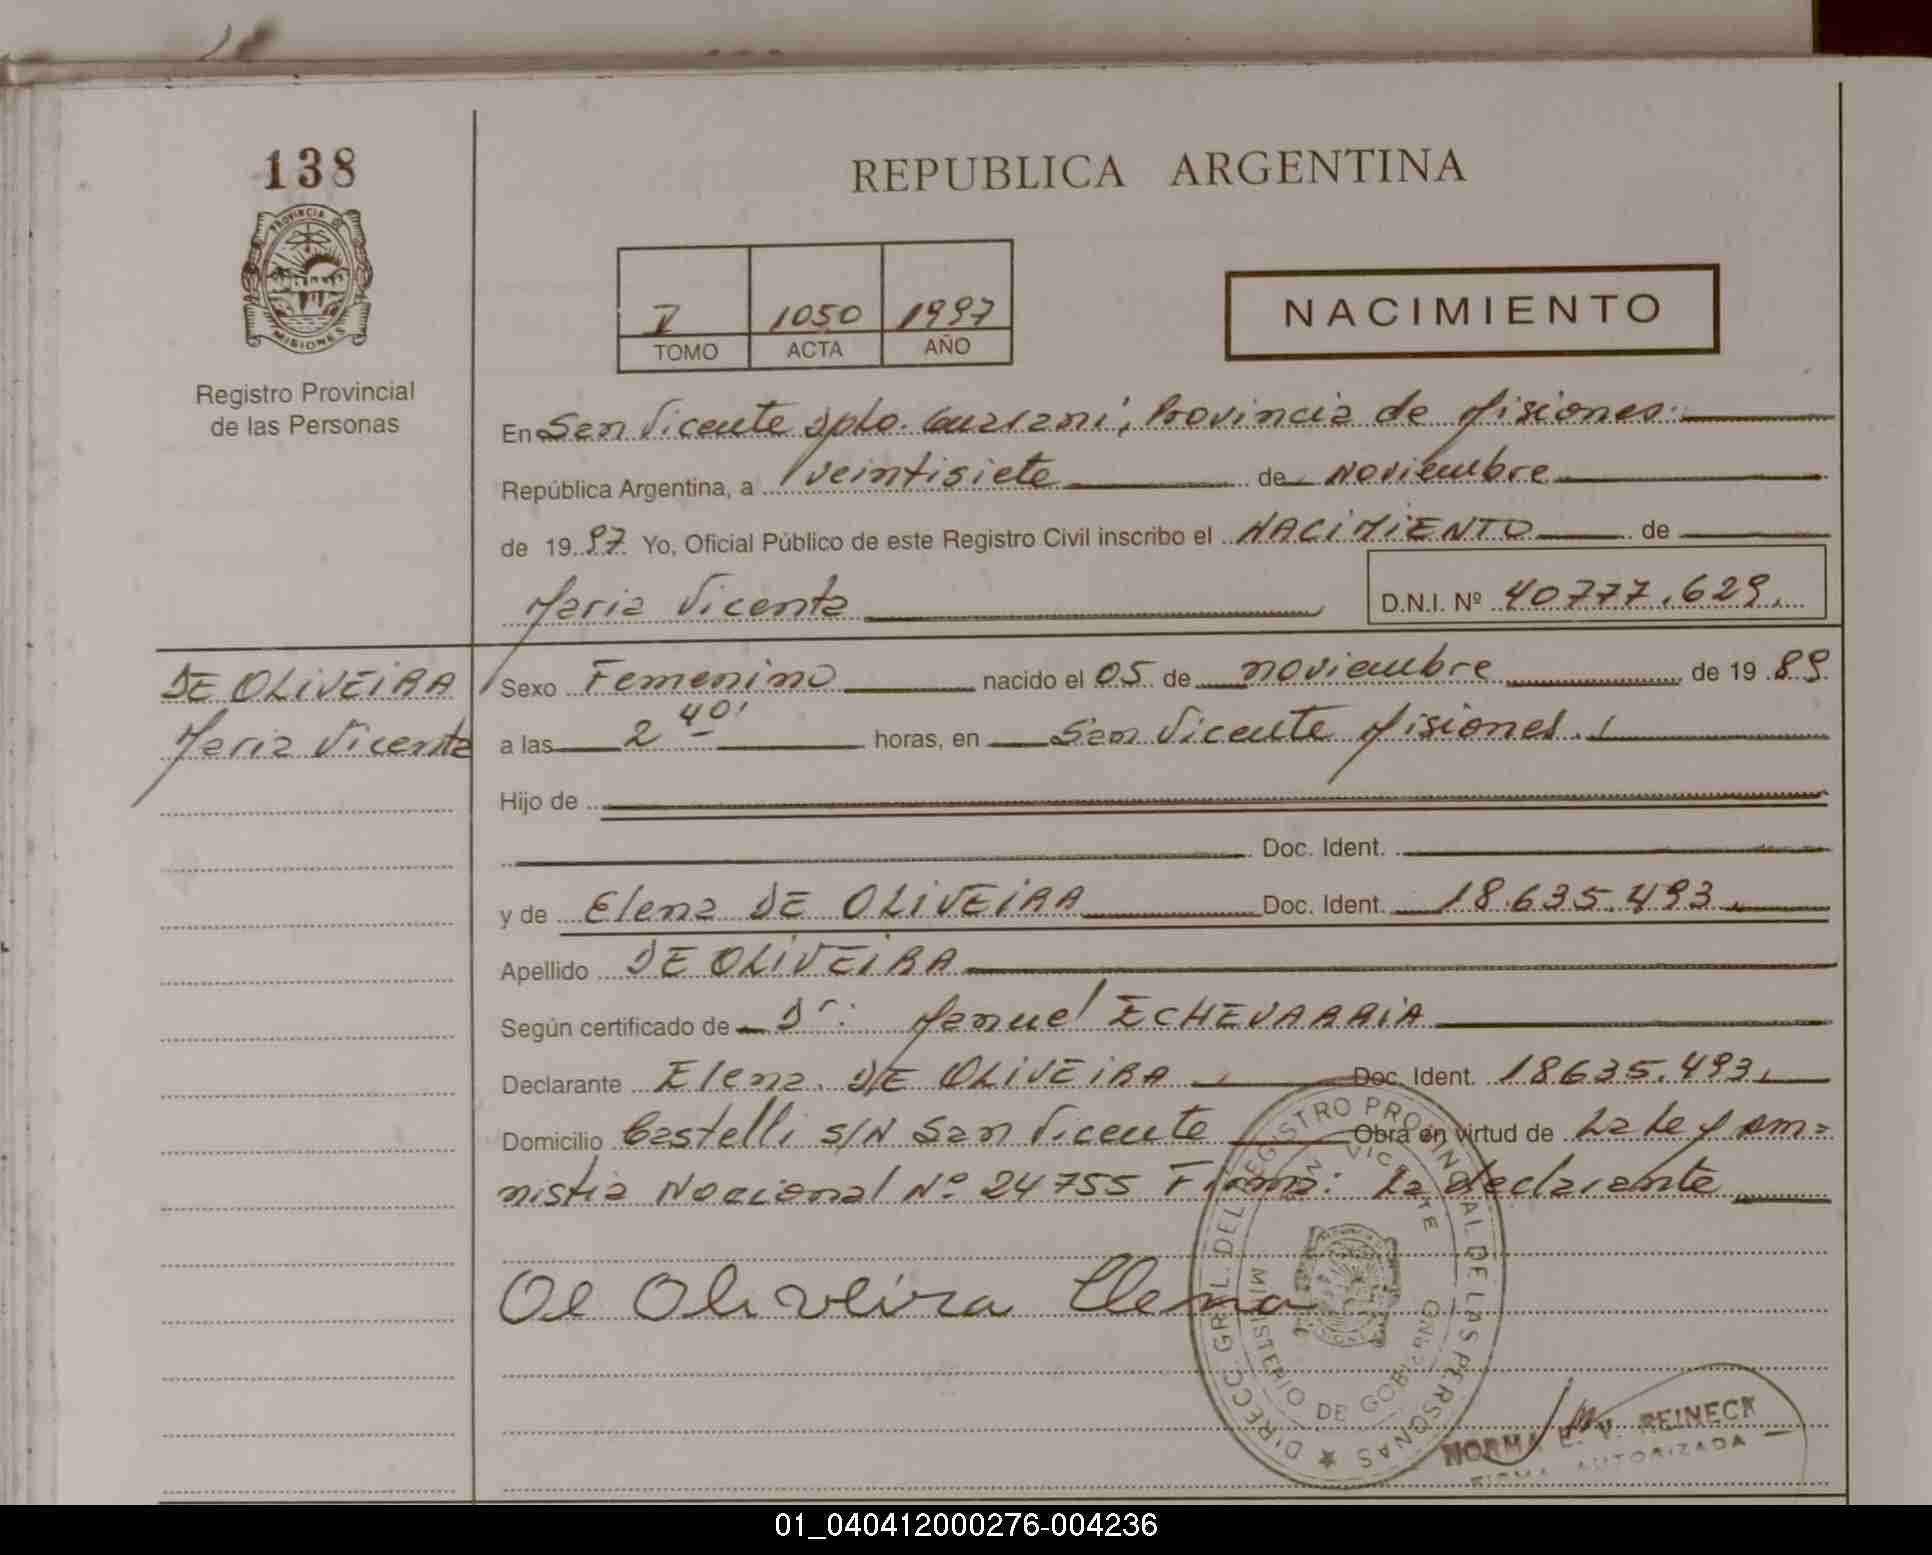 138
PROVINCIA DE
MISIONES
Registro Provincial
de las Personas
REPUBLICA ARGENTINA
V 1050 1997
TOMO ACTA AÑO
NACIMIENTO
En San Vicente Dpto. Guaraní, Provincia de Misiones.
República Argentina, a veintisiete de noviembre
de 1997 Yo, Oficial Público de este Registro Civil inscribo el NACIMIENTO de
Maria Vicenta D.N.I. Nº 40777.629.
DE OLIVEIRA
Maria Vicenta
Sexo Femenino nacido el 05 de noviembre de 1989
a las 2 40' horas, en San Vicente Misiones.
Hijo de
Doc. Ident.
y de Elena DE OLIVEIRA Doc. Ident. 18.635.493.
Apellido DE OLIVEIRA
Según certificado de Dr: Manuel ECHEVARRIA
Declarante Elena DE OLIVEIRA Doc. Ident. 18635.493.
Domicilio Castelli S/N San Vicente Obra en virtud de La Ley am=
nistia Nacional Nº 24755 Firma: La declarante
De Oliveira Elena
DIRECC. GRAL. DEL REGISTRO PROVINCIAL DE LAS PERSONAS
SAN VICENTE
MINISTERIO DE GOBIERNO
NORMA E. V. REINECK
FIRMA AUTORIZADA
01_040412000276-004236